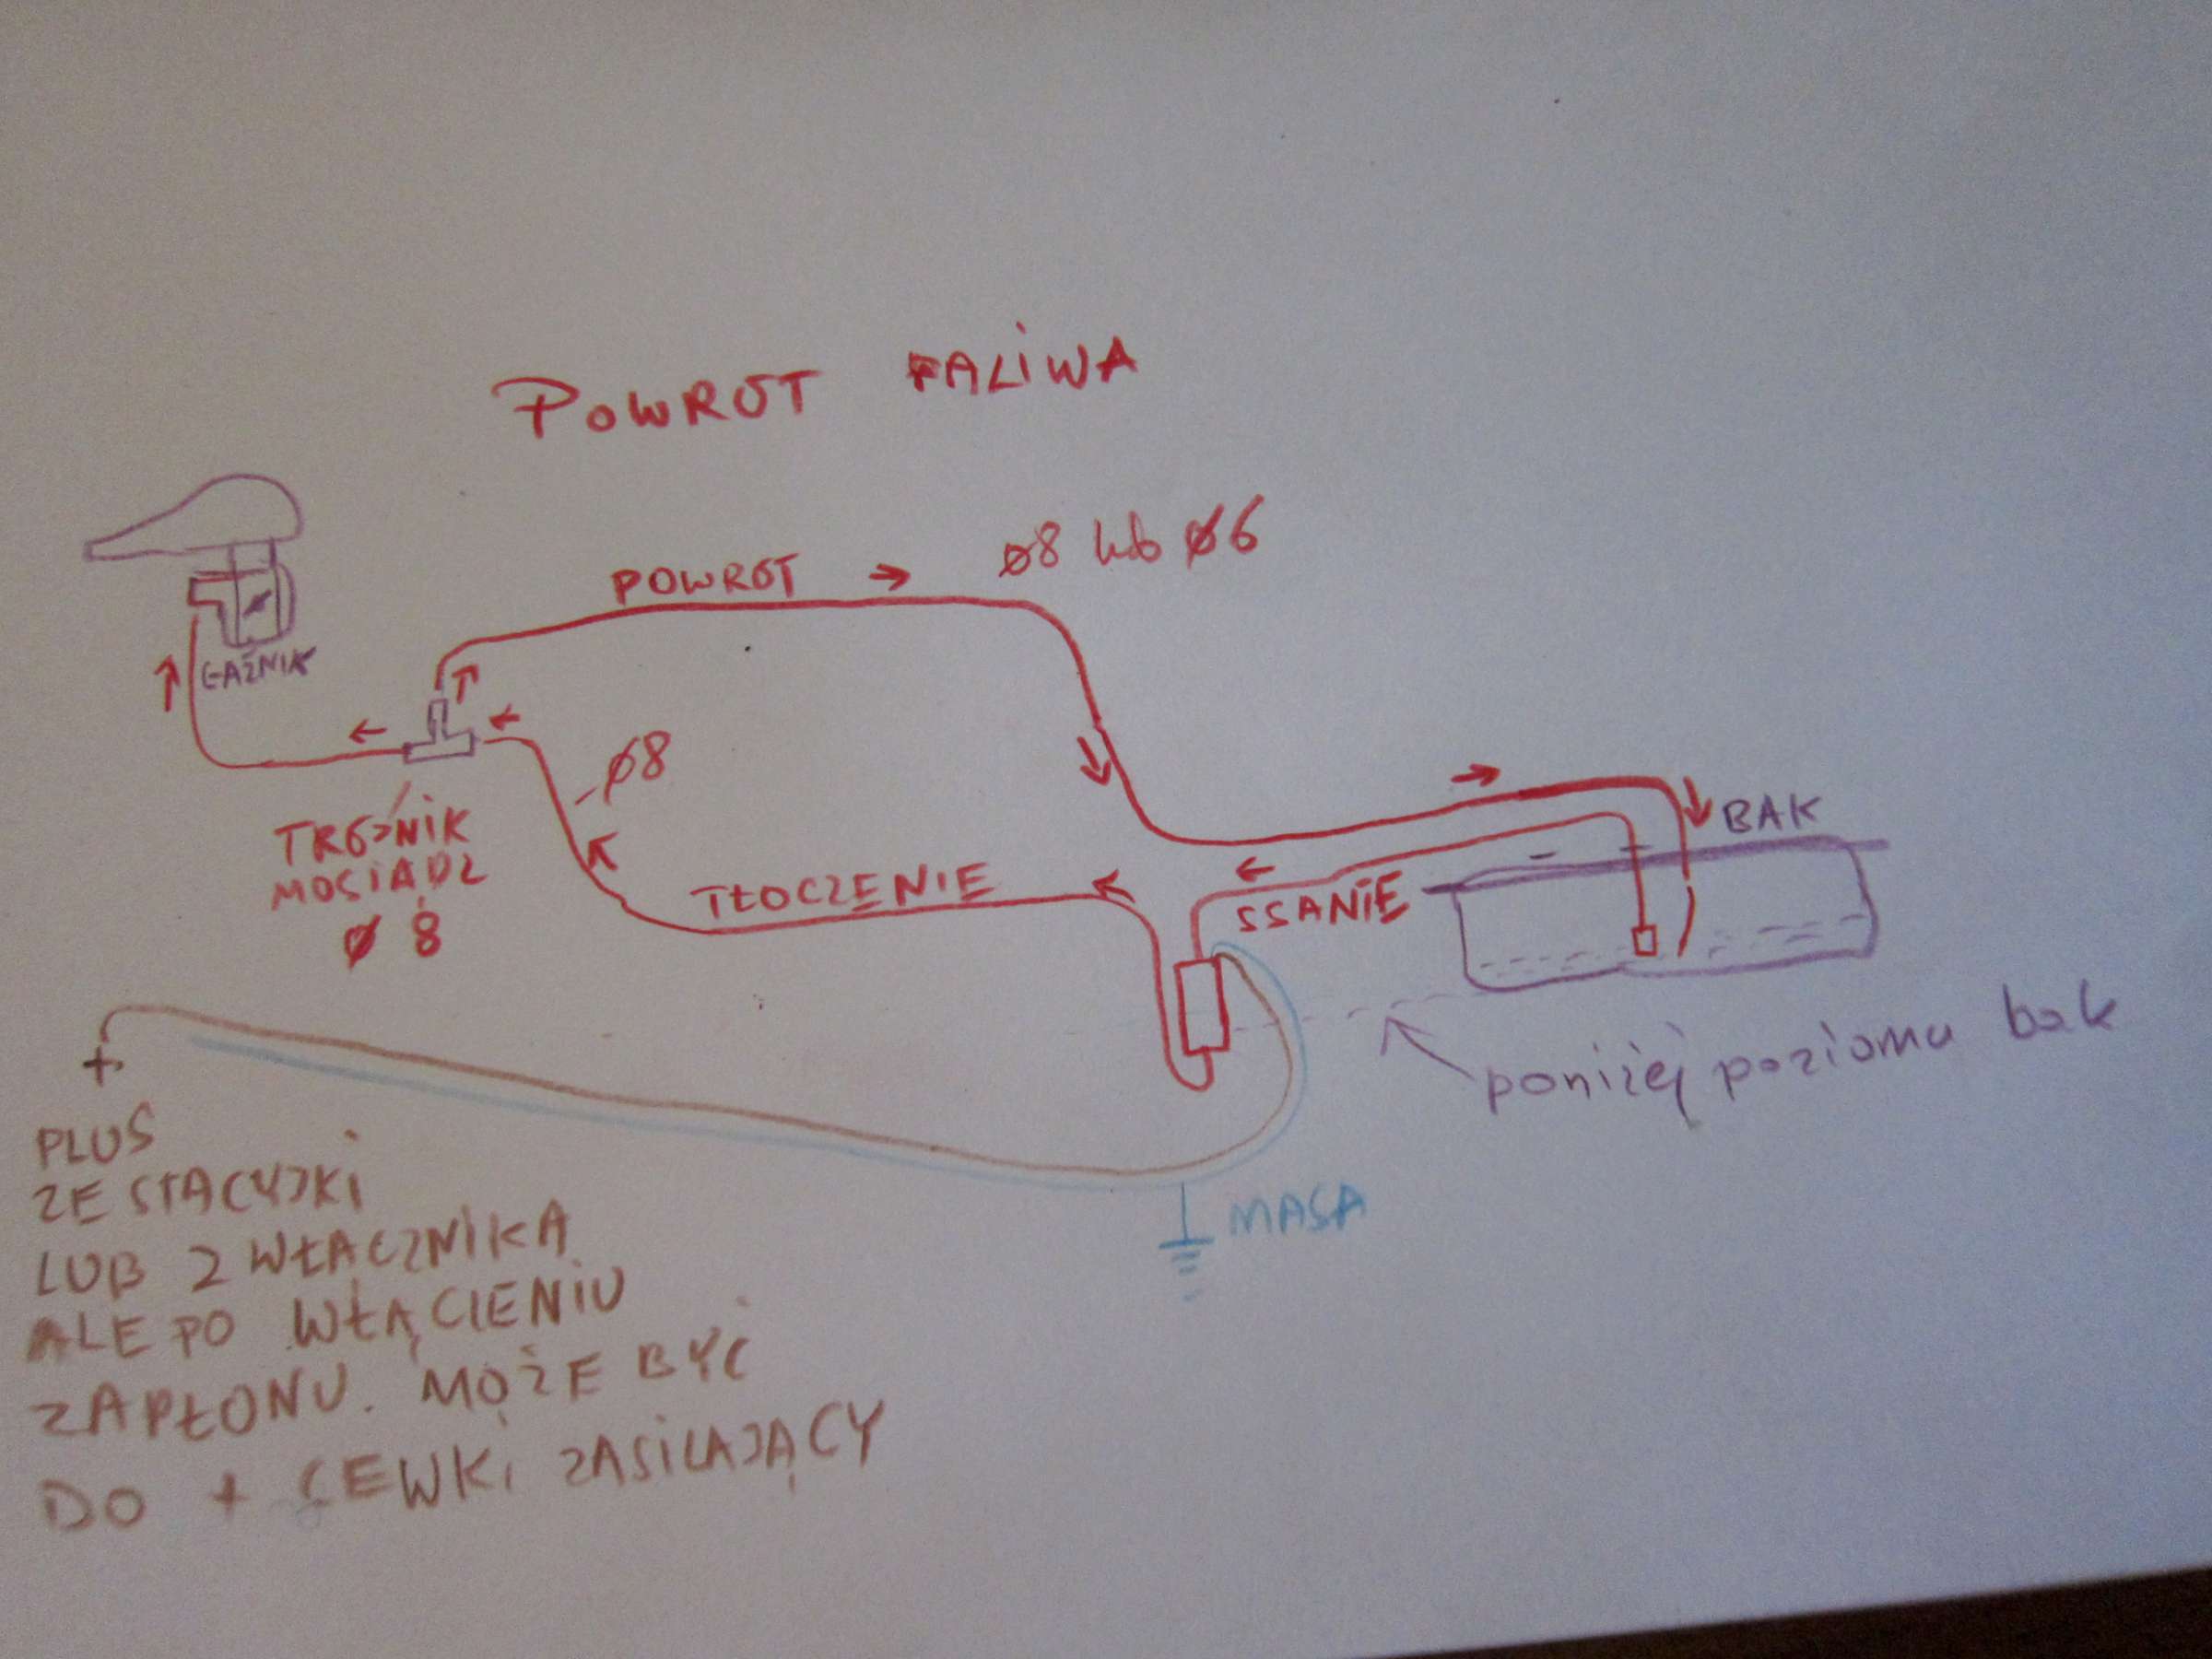 POWRÓT PALIWA
POWRÓT → ø8 lub ø6
GAŹNIK
ø8
TRÓJNIK
MOSIĄDZ
ø 8
TŁOCZENIE
SSANIE
BAK
poniżej poziomu bak
+
PLUS
ZE STACYJKI
LUB Z WŁACZNIKA
ALE PO WŁĄCZENIU
ZAPŁONU. MOŻE BYĆ
DO + CEWKI ZASILAJĄCY
MASA